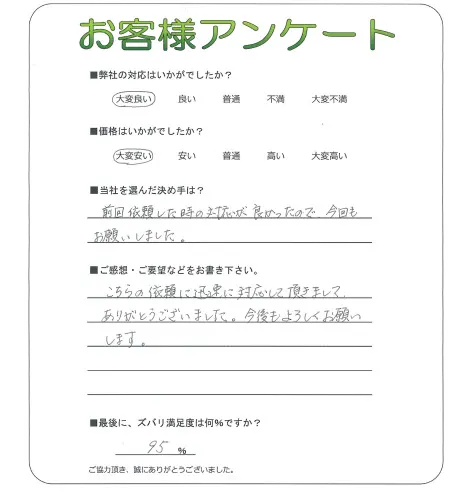 お客様アンケート
■弊社の対応はいかがでしたか？
大変良い 良い 普通 不満 大変不満
■価格はいかがでしたか？
大変安い 安い 普通 高い 大変高い
■当社を選んだ決め手は？
前回依頼した時の対応が良かったので、今回も
お願いしました。
■ご感想・ご要望などをお書き下さい。
こちらの依頼に迅速に対応して頂きまして、
ありがとうございました。今後もよろしくお願い
します。
■最後に、ズバリ満足度は何%ですか？
95 %
ご協力頂き、誠にありがとうございました。